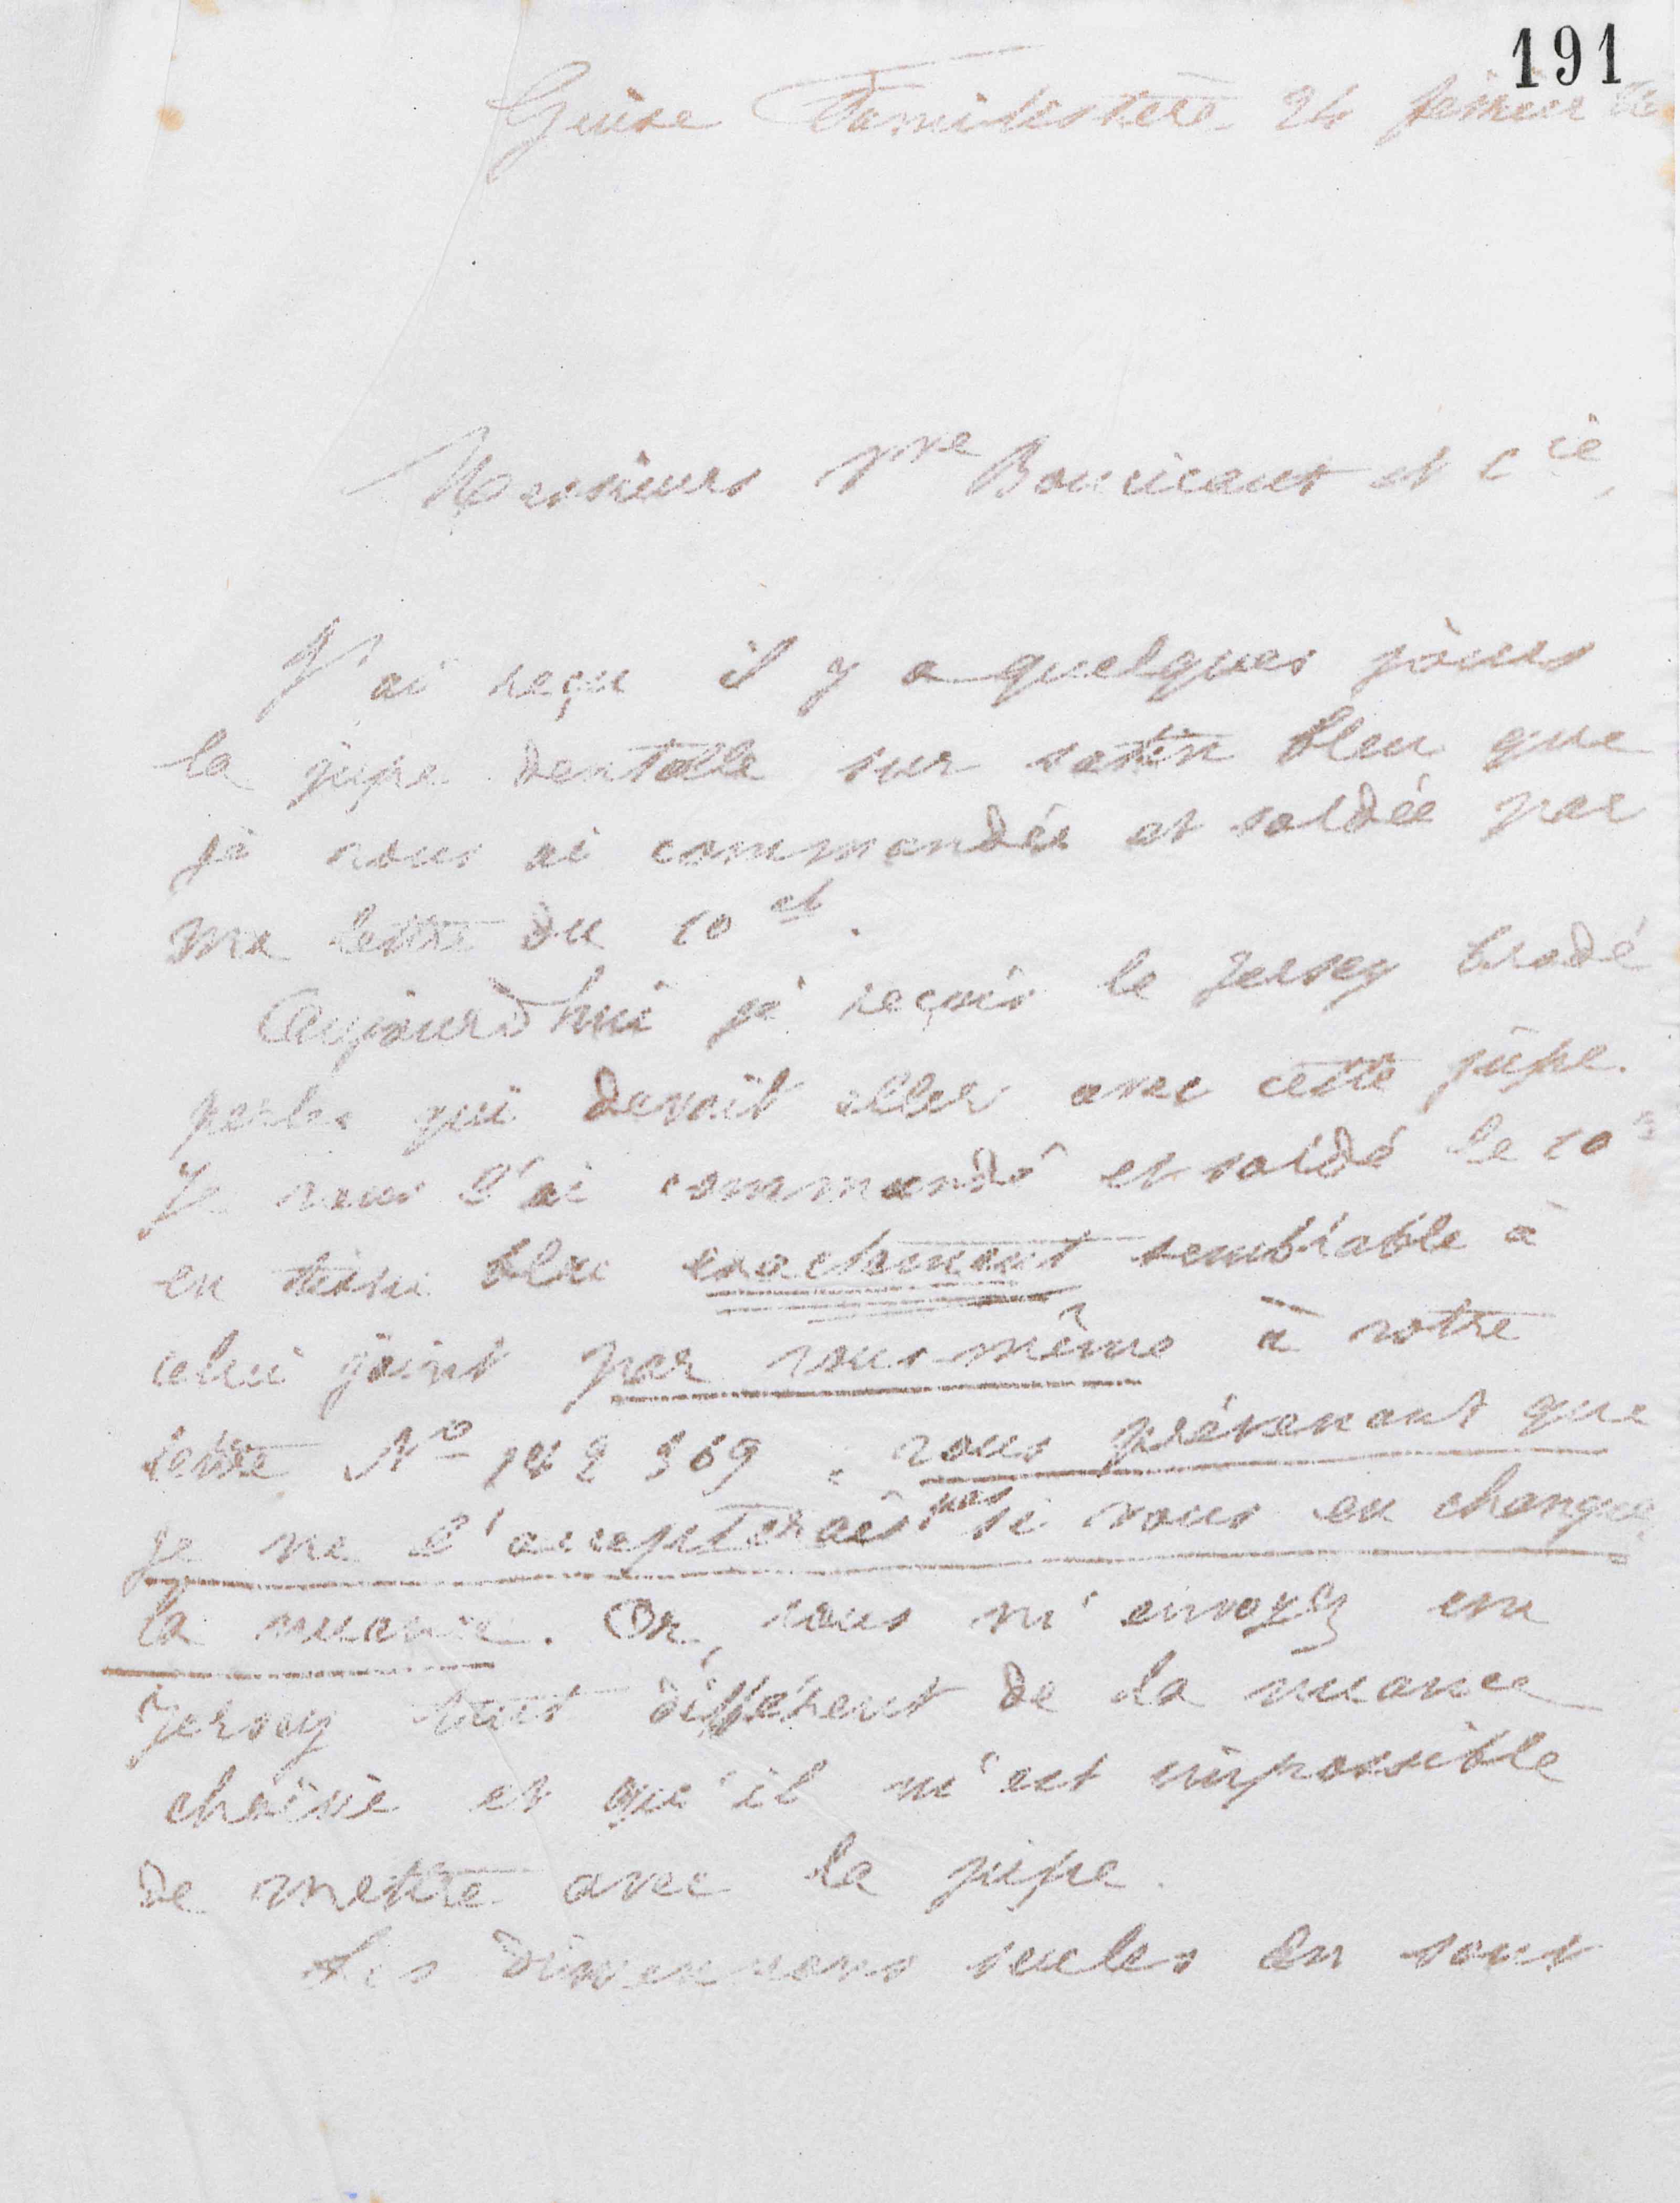 191
Guise Familistère 24 février
Messieurs Vve Boucicaut et Cie,
J'ai reçu il y a quelques jours
la jupe dentelle sur satin bleu que
je vous ai commandée et soldée par
ma lettre du 10 ct.
Aujourd'hui je reçois le Jersey brodé
perles qui devait aller avec cette jupe.
Je vous l'ai commandé et soldé le 10
en tissu bleu exactement semblable à
celui joint par vous-même à votre
lettre No 142 369, vous prévenant que
je ne l'accepterais pas si vous en changiez
la nuance. Or, vous m'envoyez un
Jersey tout différent de la nuance
choisie et qu'il m'est impossible
de mettre avec la jupe.
Les dimensions seules en sont